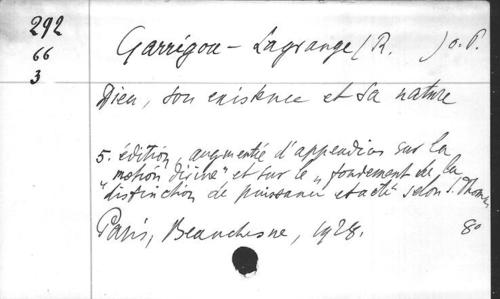 292
66
3
Garrigou - Lagrange (R. ) o. P.
Dieu, son existence et sa nature
5. édition, augmentée d'appendices sur la
"motion divine" et sur le "fondement de la
"distinction de puissance et acte" selon S. Thomas
Paris, Beauchesne, 1928. 8º